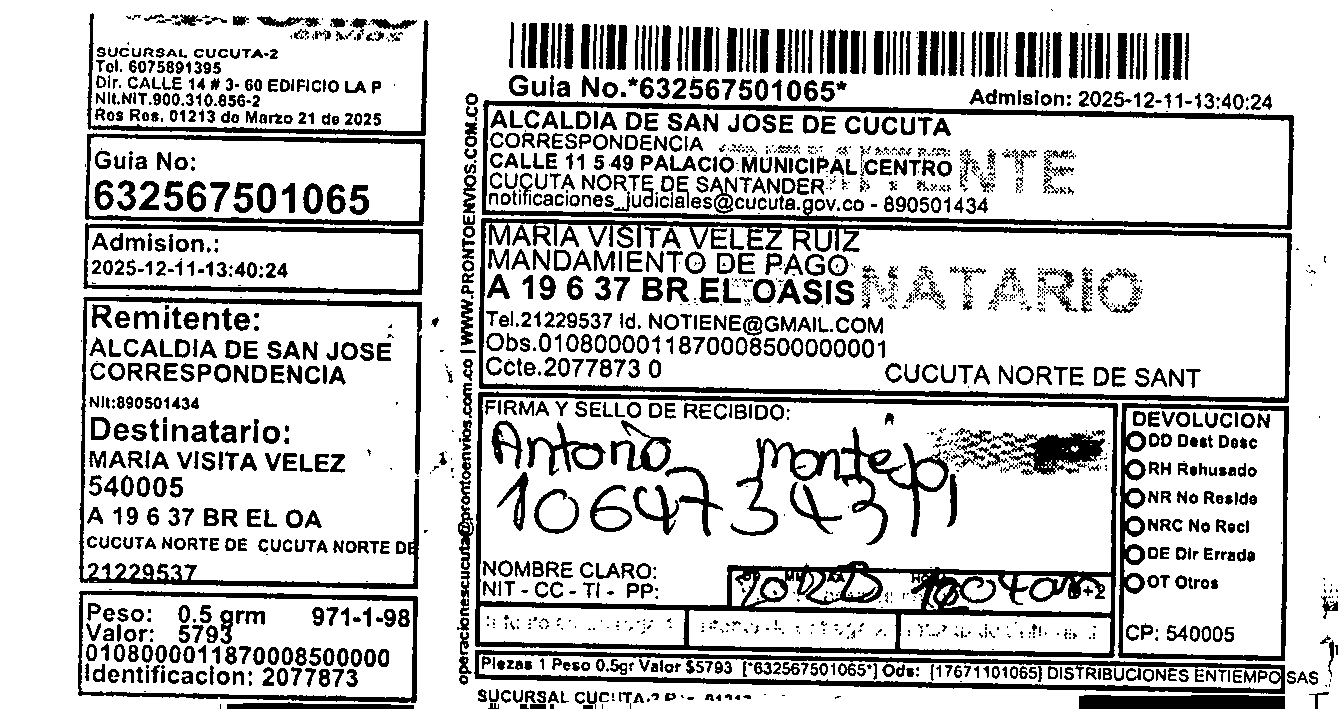 envios
SUCURSAL CUCUTA-2
Tel. 6075891395
Dir. CALLE 14 # 3- 60 EDIFICIO LA P
Nit.NIT.900.310.856-2
Res Res. 01213 de Marzo 21 de 2025
Guia No:
632567501065
Admision.:
2025-12-11-13:40:24
Remitente:
ALCALDIA DE SAN JOSE
CORRESPONDENCIA
Nit:890501434
Destinatario:
MARIA VISITA VELEZ
540005
A 19 6 37 BR EL OA
CUCUTA NORTE DE CUCUTA NORTE DE
21229537
Peso: 0.5 grm 971-1-98
Valor: 5793
0108000011870008500000
Identificacion: 2077873
operacionescucuta@prontoenvios.com.co | WWW.PRONTOENVIOS.COM.CO
Guia No.*632567501065*
Admision: 2025-12-11-13:40:24
ALCALDIA DE SAN JOSE DE CUCUTA
CORRESPONDENCIA
CALLE 11 5 49 PALACIO MUNICIPAL CENTRO
CUCUTA NORTE DE SANTANDER
notificaciones_judiciales@cucuta.gov.co - 890501434
MARIA VISITA VELEZ RUIZ
MANDAMIENTO DE PAGO
A 19 6 37 BR EL OASIS
NATARIO
Tel.21229537 Id. NOTIENE@GMAIL.COM
Obs.0108000011870008500000001
Ccte.2077873 0
CUCUTA NORTE DE SANT
FIRMA Y SELLO DE RECIBIDO:
Antonio Montejo
NOMBRE CLARO:
NIT - CC - TI - PP:
DEVOLUCION
DD Dest Desc
RH Rehusado
NR No Reside
NRC No Recl
DE Dir Errada
OT Otros
CP: 540005
Piezas 1 Peso 0.5gr Valor $5793 [*632567501065*] Ods: [17671101065] DISTRIBUCIONES ENTIEMPO SAS